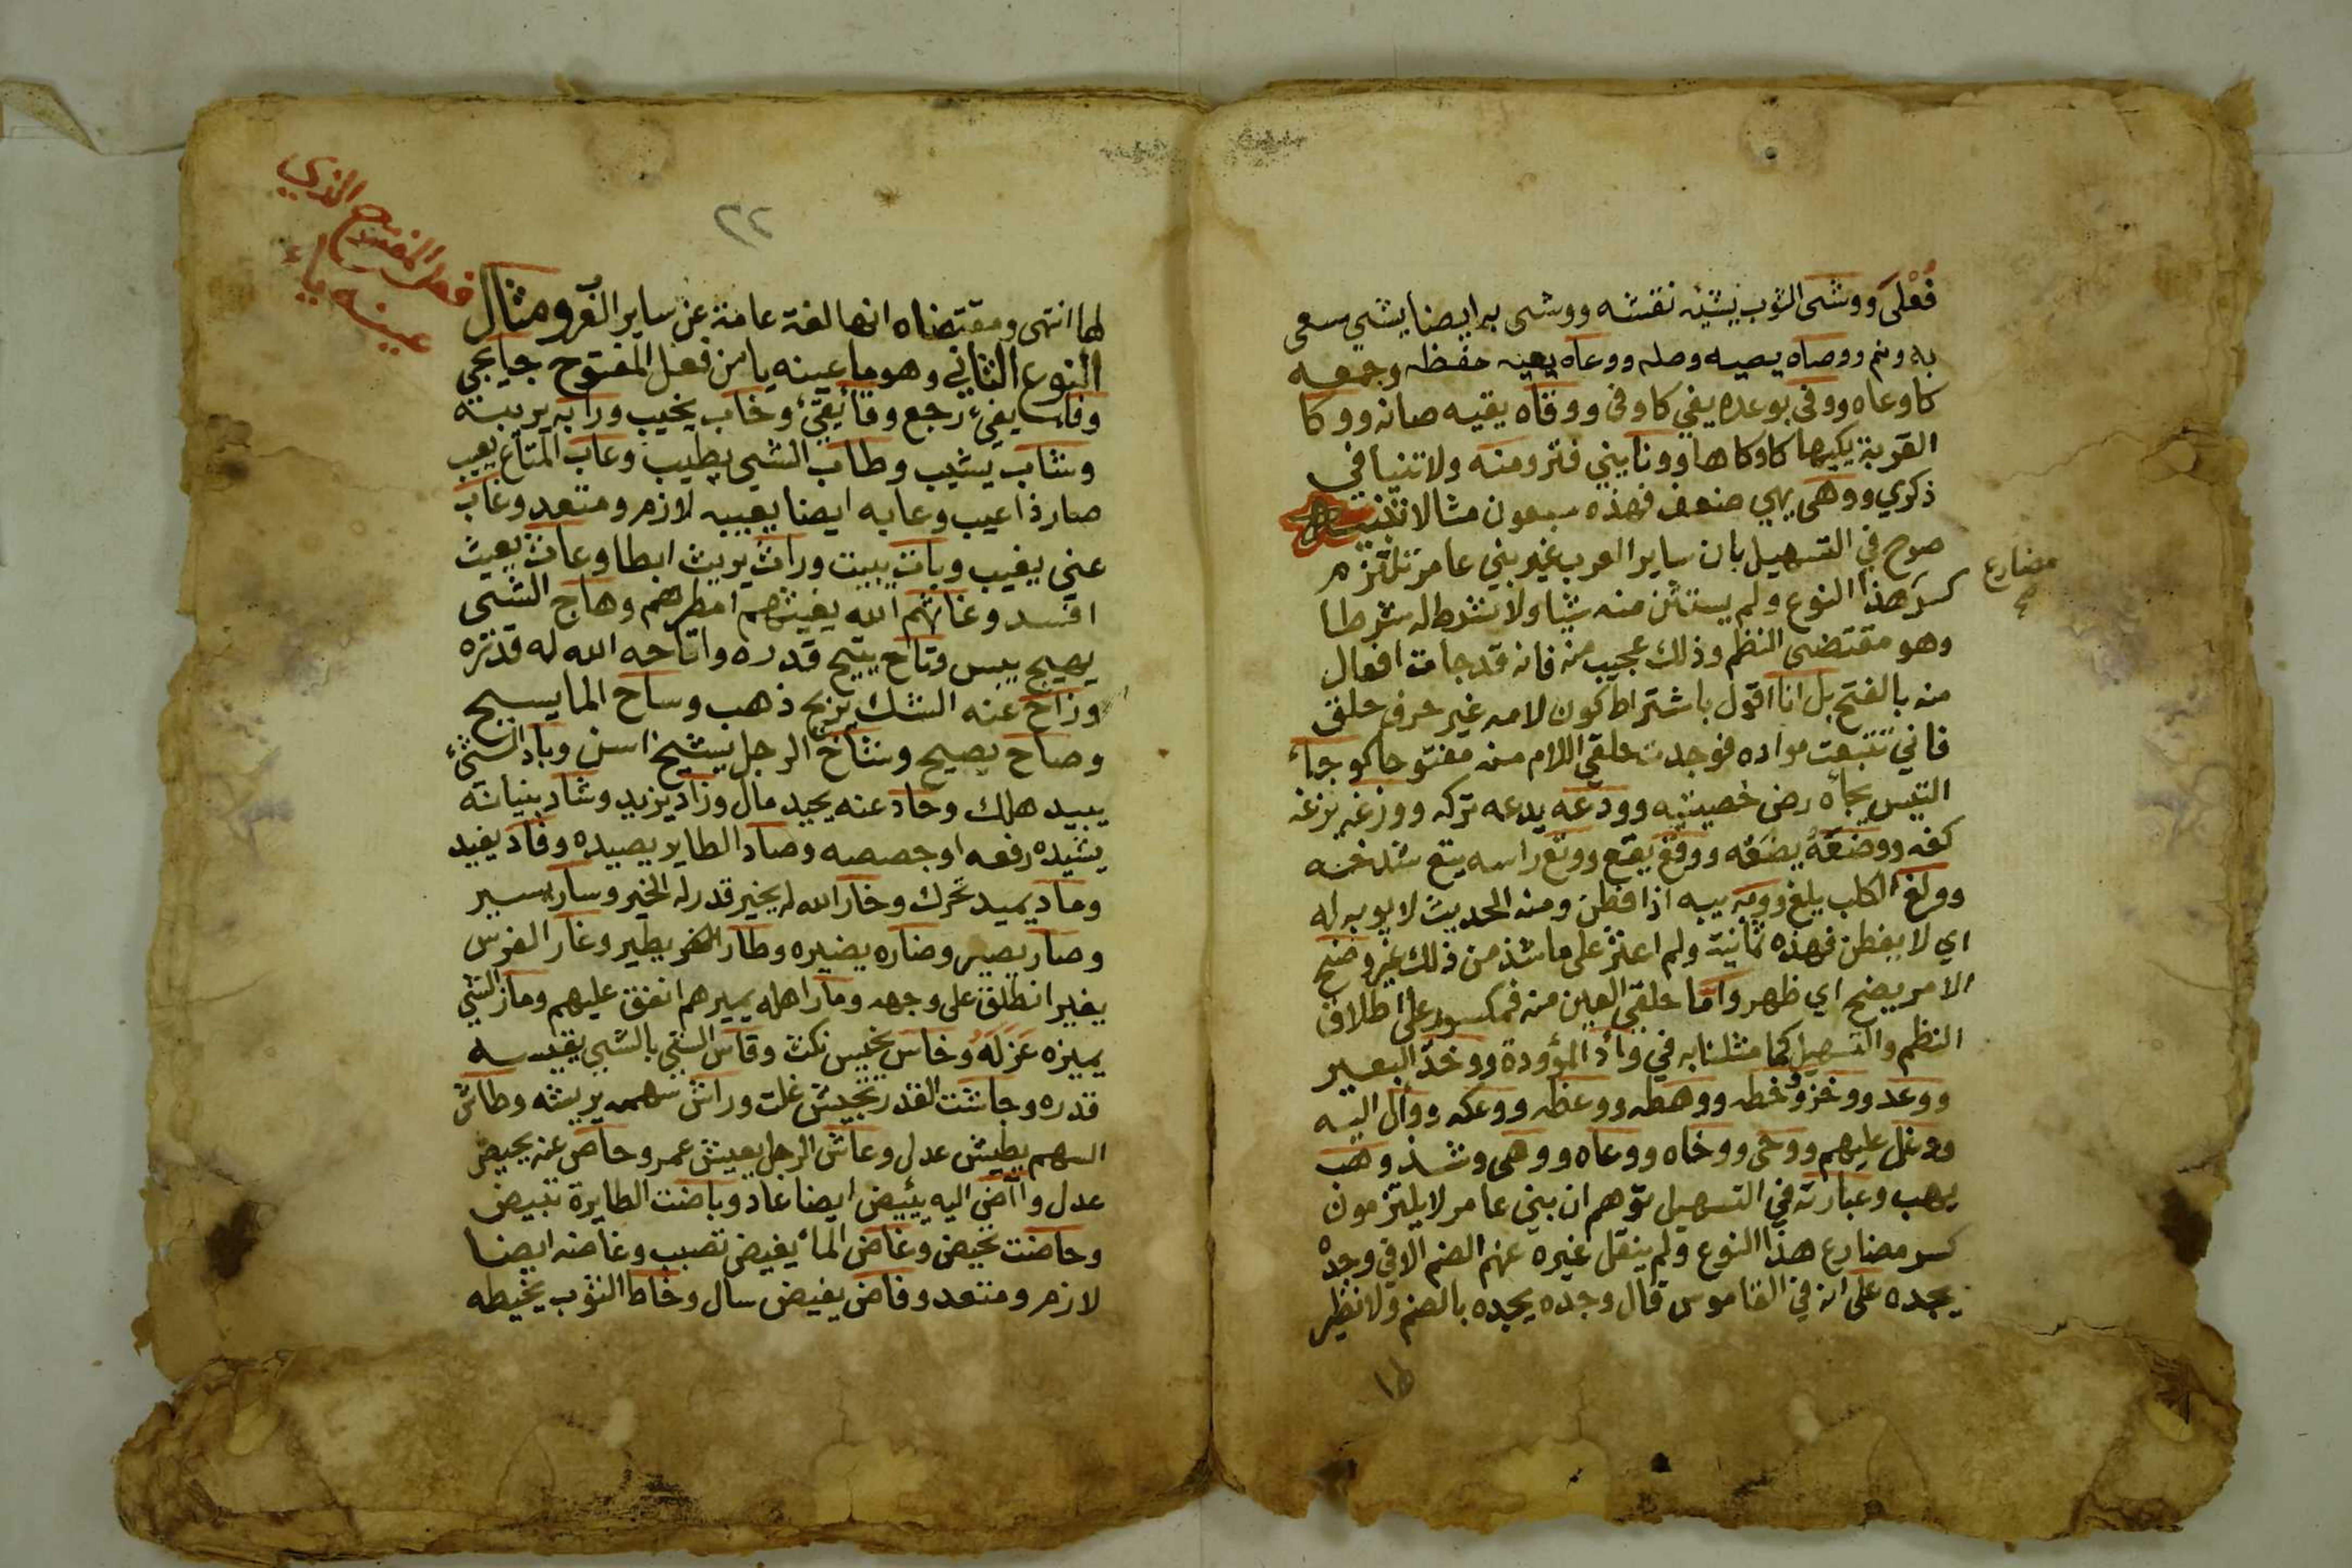 فُعْلَى ووشى الثوب يشيه نقشه ووشى به ايضا يشي سعى
به ونم ووصاه يصيه وصله ووعاه يعيه حفظه وجمعه
كاوعاه ووفى بوعده يفي كاوفى ووقاه يقيه صانه ووكا
القربة يكيها كاوكاها وونا يني فتر ومنه ولا تنيا في
ذكري ووهى يهي ضعف فهذه سبعون مثالا تنبيه
صرح في التسهيل بان ساير العرب غير بني عامر تلتزم
مضارع
كسر هذا النوع ولم يستثن منه شيا ولا يشترط له شرطا
وهو مقتضى النظم وذلك عجيب منه فانه قد جات افعال
منه بالفتح بل انا اقول باشتراط كون لامه غير حرف حلق
فاني تتبعت مواده فوجدت حلقي اللام منه مفتوحا كوجاء
التيس يجأه رض خصيتيه وودعه يدعه تركه ووزغه يزغه
كفه ووضعه يضعه ووقع يقع ووتغ راسه يتغ شدخه
وولغ الكلب يلغ ووبه يبه اذا فطن ومنه الحديث لا يوبه له
اي لا يفطن فهذه ثمانية ولم اعثر على ما شذ من ذلك غير وضح
الامر يضح اي ظهر واما حلقي العين منه فمكسور على اطلاق
النظم والتسهيل كما مثلنا به في وأد المؤودة ووخد البعير
ووعد ووخز وخطه ووهطه ووعظه ووعكه ووأل اليه
ووغل عليهم ووحى ووخاه ووعاه ووهى وشذ وهب
يهب وعبارته في التسهيل توهم ان بني عامر لا يلتزمون
كسر مضارع هذا النوع ولم ينقل غيره عنهم الضم الا في وجده
يجده على انه في القاموس قال وجده يجده بالضم ولا نظير
٢٢
فعل المفتوح الذي
عينه ياء
لها انتهى ومقتضاه انها لغة عامة عن ساير العرب ومثال
النوع الثاني وهو ما عينه يا من فعل المفتوح جا يجي
وفا يفيء رجع وقا يقيء وخاب يخيب ورابه يريبه
وشاب يشيب وطاب الشي يطيب وعاب المتاع يعيب
صار ذا عيب وعابه ايضا يعيبه لازم ومتعد وغاب
عني يغيب وبات يبيت وراث يريث ابطا وعاث يعيث
افسد وغاثهم الله يغيثهم امطرهم وهاج الشي
يهيج يبس وتاح يتيح قدره واتاحه الله له قدره
وزاح عنه الشك يزيح ذهب وساح الما يسيح
وصاح يصيح وشاخ الرجل يشيخ اسن وباد الشيء
يبيد هلك وحاد عنه يحيد مال وزاد يزيد وشاد بنيانه
يشيده رفعه او جصصه وصاد الطاير يصيده وفاد يفيد
وماد يميد تحرك وخار الله له يخير قدر له الخير وسار يسير
وصار يصير وضاره يضيره وطار يطير وغار الفرس
يغير انطلق على وجهه ومار اهله يميرهم انفق عليهم وماز الشي
يميزه عَزَلَهُ وخاس يخيس نكث وقاس الشي بالشي يقيسه
قدره وجاشت القدر تجيش غلت وراش سهمه يريشه وطاش
السهم يطيش عدل وعاش الرجل يعيش عمر وحاص عنه يحيص
عدل واآض اليه يئيض ايضا عاد وباضت الطايرة تبيض
وحاضت تحيض وغاض الما يغيض نضب وغاضه ايضا
لازم ومتعد وفاض يفيض سال وخاط الثوب يخيطه